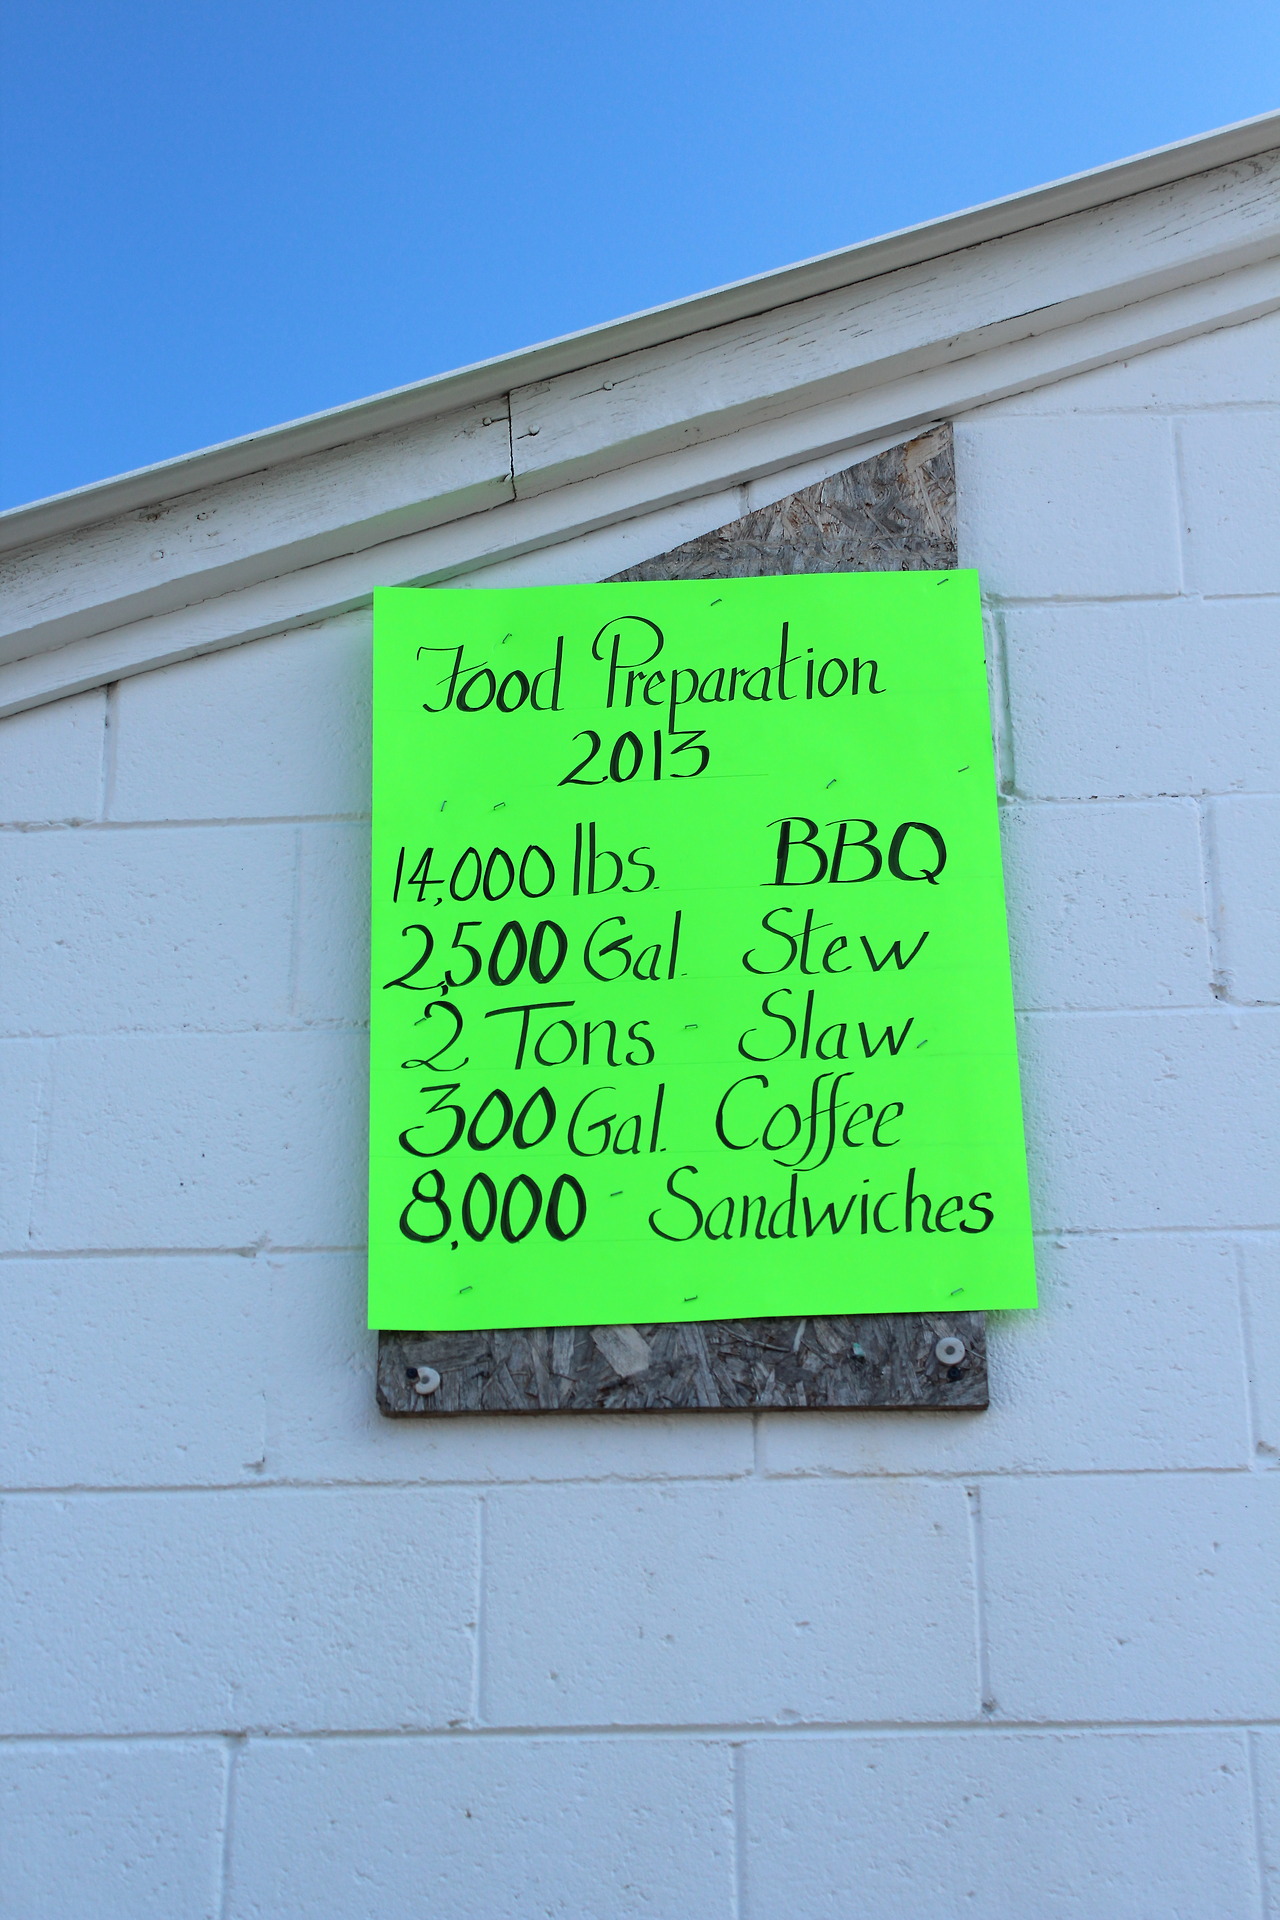 Food Preparation
2013
14,000 lbs. BBQ
2,500 Gal. Stew
2 Tons Slaw
300 Gal. Coffee
8,000 Sandwiches